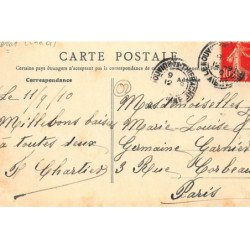 CARTE POSTALE
Certains pays étrangers n'acceptent pas la correspondance de
Correspondance
Le 11/9/10
Mille bons baisers
à toutes deux
P. Chartier
Mesdemoiselles
Marie-Louise &
Germaine Garnier
3 Rue Corbeau
Paris